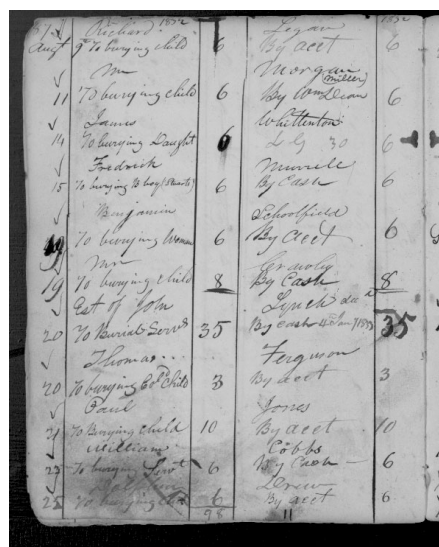 Richard 1832 Logan 1832
Augt 9 To burying child 6 By acct 6
Mr Morgan
(Miller)
11 To burying child 6 By Wm Dean 6
James Whittenton
14 To burying Daught 6 30 6
Fredrick Murrell
15 To burying B boy (Stuarts) 6 By Cash 6
Benjamin Schoolfield
To burying Woman 6 By acct 6
Mr Crawley
19 To burying child 8 By Cash 8
Est of John Lynch
20 To Burial Servt 35 By Cash 35
Thomas Ferguson
20 To burying Cold Child 3 By acct 3
Paul Jones
21 To Burying child 10 By acct 10
William Cobbs
To burying Servt 6 By Cash 6
Drew
25 To burying 6 By acct 6
98 11